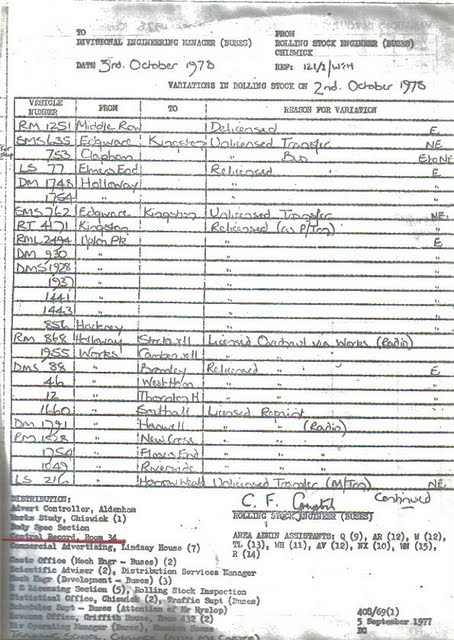 TO
DIVISIONAL ENGINEERING MANAGER (BUSES)
FROM
ROLLING STOCK ENGINEER (BUSES)
CHISWICK
DATE 3rd. October 1978
REF: 121/1/WTH
VARIATIONS IN ROLLING STOCK ON 2nd. October 1978
VEHICLE NUMBER FROM TO REASON FOR VARIATION
RM 1251 Middle Row Delicensed E
SMS 635 Edgware Kingston Unlicensed Transfer NE
753 Clapham " " Bus E to NE
LS 77 Elmers End Relicensed E
DM 1748 Holloway " "
1754 " " "
SMS 762 Edgware Kingston Unlicensed Transfer NE
RT 4171 Kingston Relicensed (as P/Trn) "
RML 2494 Upton Pk " E
DM 930 " " "
DMS 1928 " " "
1937 " " "
1441 " " "
1443 " " "
856 Hackney " "
RM 868 Holloway Stockwell Licensed Overhaul via Works (Radio)
1955 Works Camberwell " "
DMS 88 " Bromley Relicensed E
46 " West Ham " "
12 " Thornton H " "
1660 " Southall Licensed Repaint
DM 1791 " Hanwell " (Radio)
RM 1528 " New Cross "
1754 " "
1049 " Riverside "
LS 216 " Harrow Weald Unlicensed Transfer (M/Trn) NE
Continued
DISTRIBUTION:
Advert Controller, Aldenham
Works Study, Chiswick (1)
Body Spec Section
Central Record, Room 34
Commercial Advertising, Lindsay House (7)
Costs Office (Mech Engr - Buses) (2)
Scientific Adviser (2), Distribution Services Manager
Mech Engr (Development - Buses) (3)
R S Licensing Section (5), Rolling Stock Inspection
Statistical Office, Chiswick (2), Traffic Supt (Buses)
Schedules Supt - Buses (Attention of Mr Hyslop)
Revenue Office, Griffith House, Room 432 (2)
ROLLING STOCK ENGINEER (BUSES)
AREA ADMIN ASSISTANTS: Q (9), AR (12), W (12)
TL (13), WH (11), AV (12), NX (10), WN (15),
R (14)
408/69(1)
5 September 1977